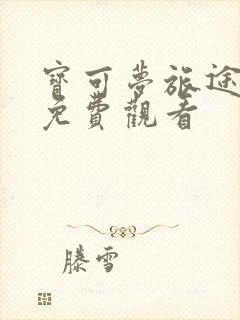 寶可夢旅途
免費觀看
滕雪